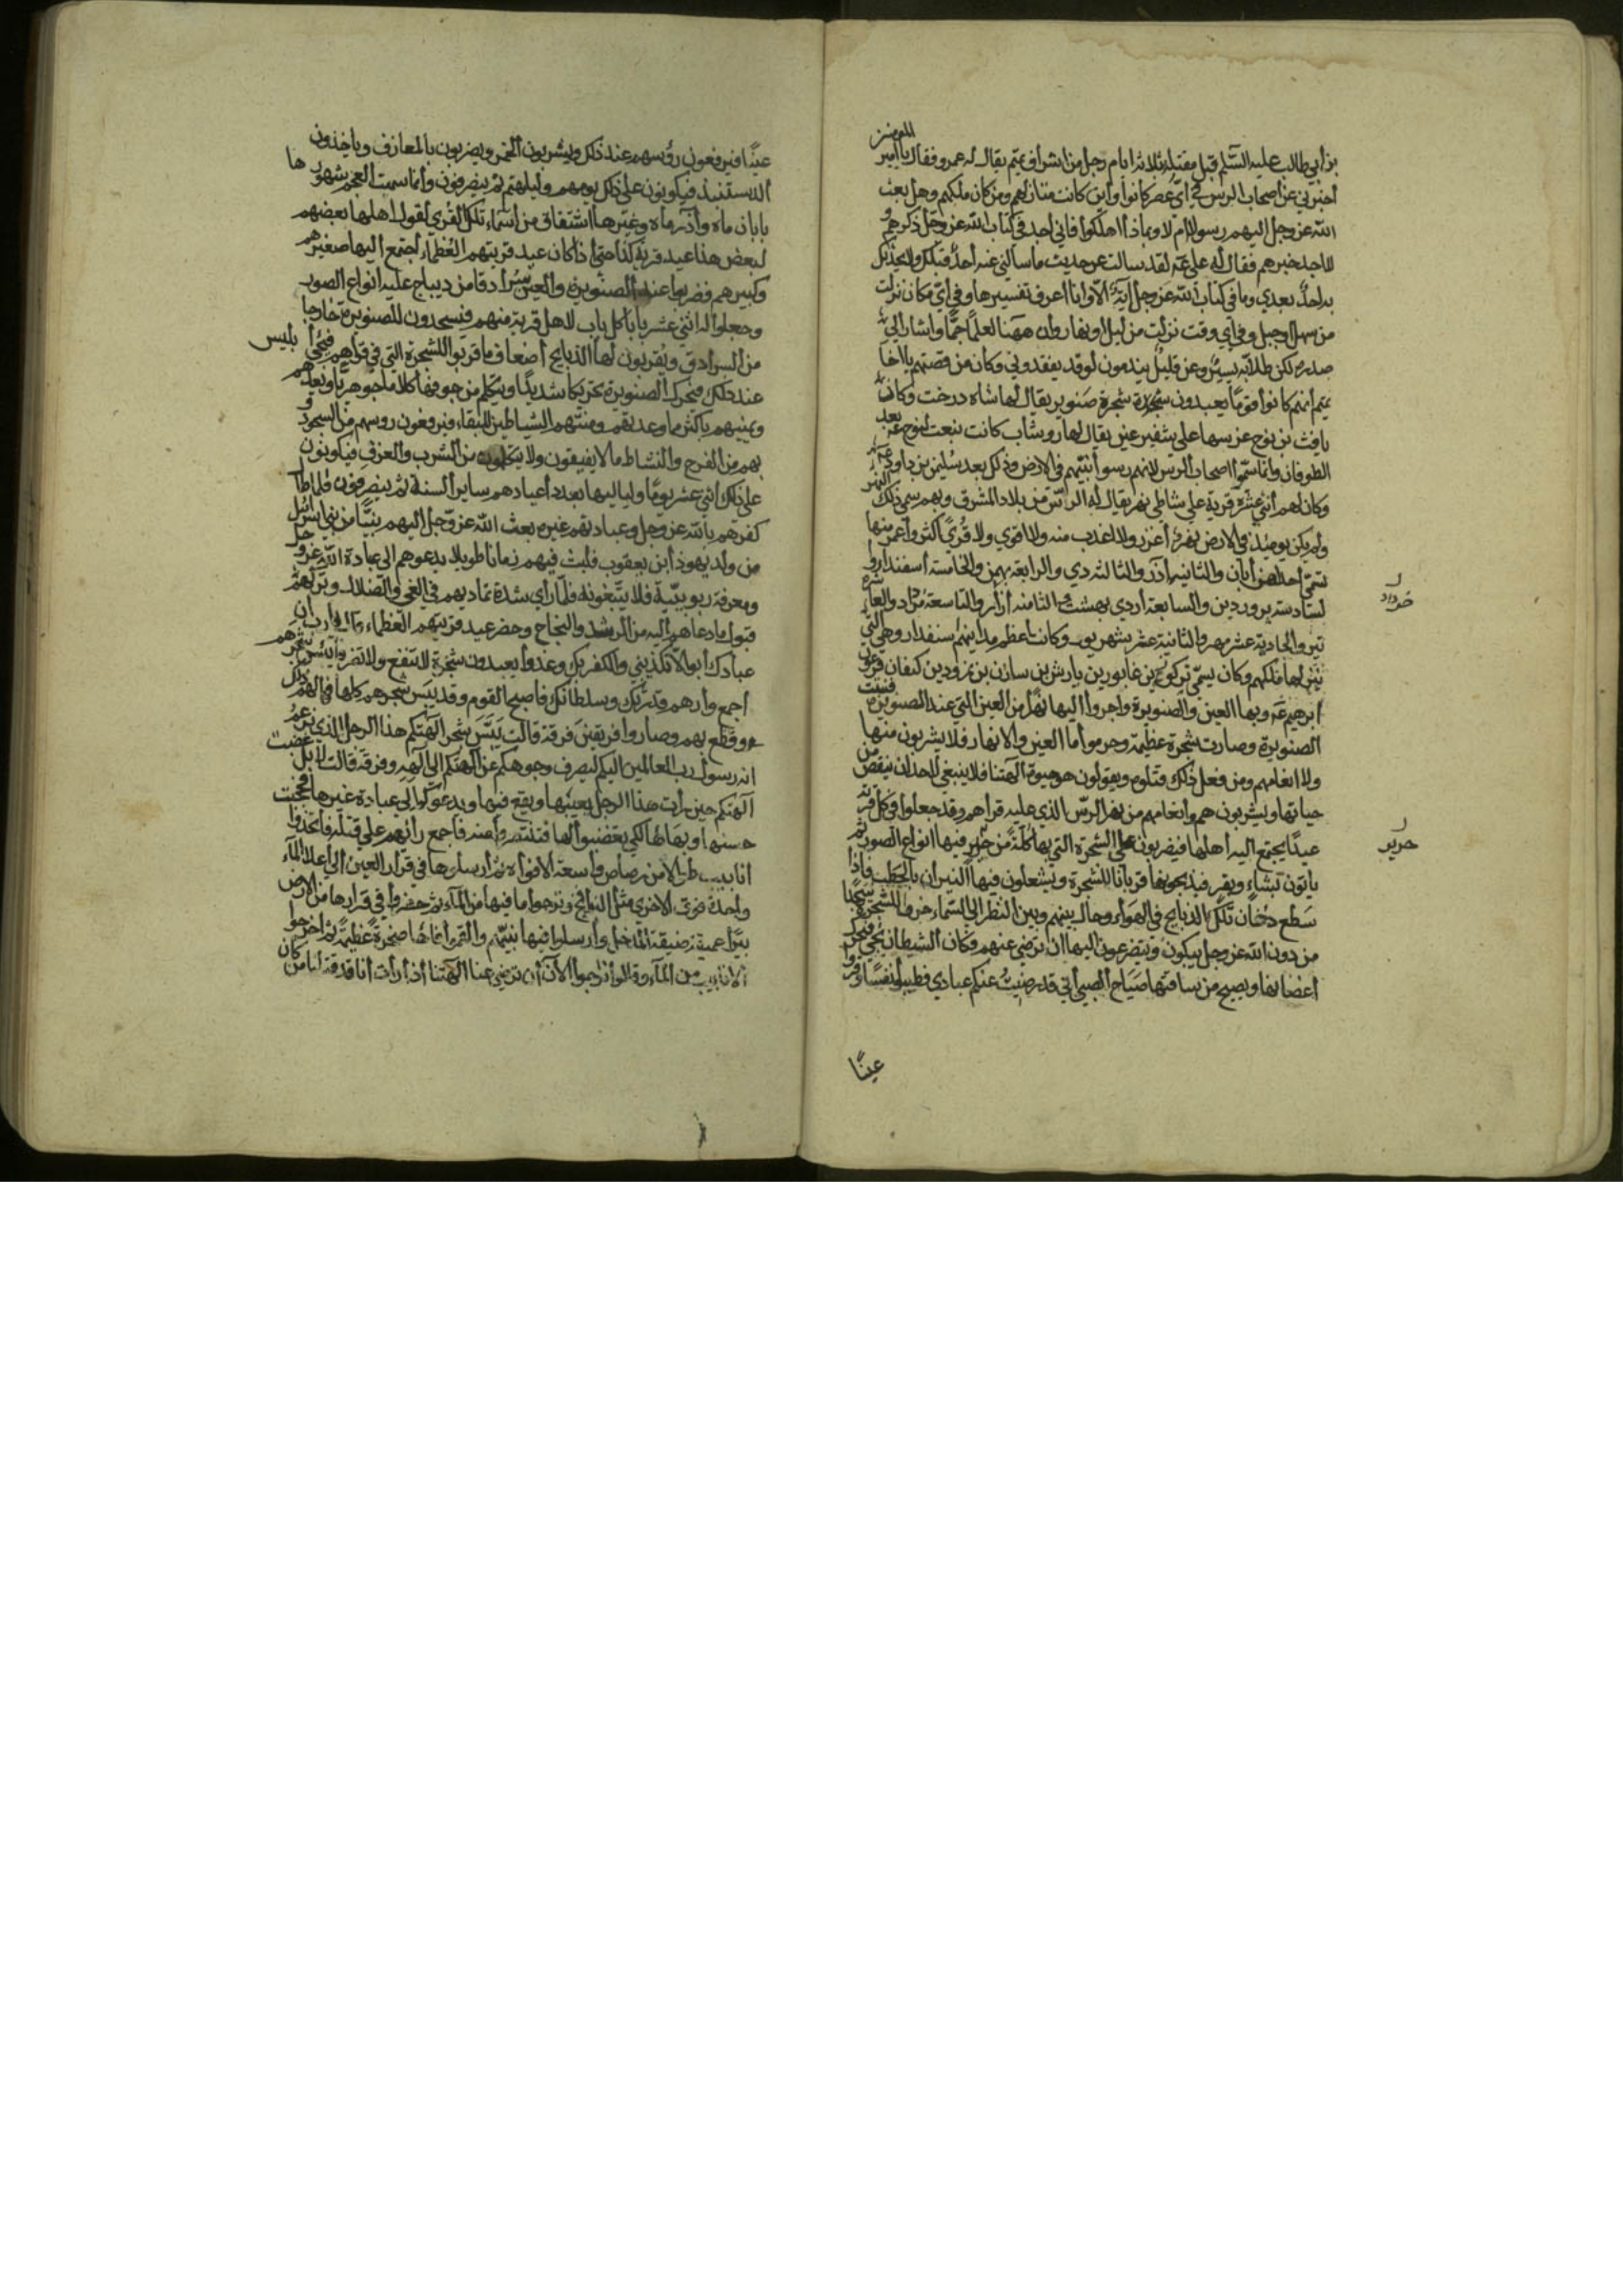 بن أبي طالب عليه السلم قبل مقتله بثلاثة ايام رجل من اشراف تميم يقال له عمرو فقال يا امير المومنين
اخبرني عن اصحاب الرس في اي عصر كانوا واين كانت منازلهم ومن كان ملكهم وهل بعث
الله عز وجل اليهم رسولا ام لا وبماذا اهلكوا فاني اجد في كتاب الله عز وجل ذكرهم و
لا اجد خبرهم فقال له علي عه لقد سالت عن حديث ما سالني عنه احد قبلك ولا يحدثك
به احد بعدي وما في كتاب الله عز وجل آية الا وانا اعرف تفسيرها وفي اي مكان نزلت
من سهل او جبل وفي اي وقت نزلت من ليل او نهار وان ههنا لعلما جما واشار الي
صدره لكن طلابه يسير وعن قليل يندمون لو قد يفقدوني وكان من قصتهم يا اخا
تميم انهم كانوا قوما يعبدون شجرة صنوبر يقال لها شاه درخت وكان
يافث بن نوح غرسها علي شفير عين يقال لها روشاب كانت نبعت لنوح عه بعد
الطوفان وانما سموا اصحاب الرس لانهم رسوا نبيهم في الارض وذلك بعد سليمن بن داود
وكان لهم اثني عشرة قرية علي شاطي نهر يقال له الرس من بلاد المشرق وبهم سمي ذلك النهر
ولم يكن يومئذ في الارض نهر اغزر ولا اعذب منه ولا اقوي ولا قري اكثر واعمر منها
تسمي احداهن أبان والثانية آذر والثالثة دي والرابعة بهمن والخامسة اسفندار و
السادسة پروردين والسابعة اردي بهشت والثامنة آزار والتاسعة مرداد والعاشرة
خرداد
تير والحادية عشر مهر والثانية عشر شهريور وكانت اعظم مداينهم اسفندار وهي التي
ينزلها ملكهم وكان يسمي تركوذ بن غابور بن يارش بن سازن بن نمرود بن كنعان فرعون
ابرهيم عه وبها العين والصنوبرة واجروا اليها نهرا من العين التي عند الصنوبرة فنبتت
الصنوبرة وصارت شجرة عظيمة وحرموا ما العين والانهار فلا يشربون منها
ولا انعامهم ومن فعل ذلك قتلوه ويقولون هو حيوة آلهتنا فلا ينبغي لاحد ان ينقص من
حياتها ويشربون هم وانعامهم من نهر الرس الذي عليه قراهم وقد جعلوا في كل قرية
عيدا يجتمع اليه اهلها فيضربون علي الشجرة التي بها كلة من حرير فيها انواع الصور ثم
حرير
ياتون بشاء وبقر فيذبحونها قربانا للشجرة ويشعلون فيها النيران بالحطب فاذا
سطع دخان تلك الذبايح في الهواء وحال بينهم وبين النظر الي السماء خروا للشجرة سجدا
من دون الله عز وجل يبكون ويتضرعون اليها ان ترضي عنهم وكان الشيطان يجي فيحرك
اغصانها ويصيح من ساقها صياح الصبي اني قد رضيت عنكم عبادي فطيبوا نفسا وقروا
عينا
عينا فيرفعون رؤسهم عند ذلك ويشربون الخمر ويضربون بالمعازف وياخذون
الدستبند فيكونون علي ذلك يومهم وليلتهم ثم ينصرفون وانما سمت العجم شهورها
بابان ماه وآذر ماه وغيرها اشتقاق من اسماء تلك القري لقول اهلها بعضهم
لبعض هذا عيد قرية كذا حتي اذا كان عيد قريتهم العظماء اجتمع اليها صغيرهم
وكبيرهم فضربوا عند الصنوبرة والعين سرادقا من ديباج عليه انواع الصور
وجعلوا له اثني عشر بابا كل باب لاهل قرية منهم فيسجدون للصنوبرة خارجا
من السرادق ويقربون لها الذبايح اضعاف ما قربوا للشجرة التي في قراهم فيجي ابليس
عند ذلك فيحرك الصنوبرة تحريكا شديدا ويتكلم من جوفها كلاما جوهريا ويعدهم
ويمنيهم باكثر مما وعدتهم ومنتهم الشياطين للبقاء فيرفعون روسهم من السجود و
بهم من الفرح والنشاط ما لا يفيقون ولا يتكلمون من الشرب والعزف فيكونون
علي ذلك اثني عشر يوما ولياليها بعدد اعيادهم ساير السنة ثم ينصرفون فلما طال
كفرهم بالله عز وجل وعبادتهم غيره بعث الله عز وجل اليهم نبيا من بني اسرائيل
من ولد يهوذا بن يعقوب فلبث فيهم زمانا طويلا يدعوهم الي عبادة الله عز وجل
ومعرفة ربوبيته فلا يتبعونه فلما راي شدة تماديهم في الغي والضلال وتركهم
قبول ما دعاهم اليه من الرشد والنجاح وحضر عيد قريتهم العظماء قال يا رب ان
عبادك ابوا الا تكذيبي والكفر بك وغدوا يعبدون شجرة لا تنفع ولا تضر فايبس شجرهم
اجمع وارهم قدرتك وسلطانك فاصبح القوم وقد يبس شجرهم كلها فهالهم ذلك
وقطع بهم وصاروا فرقتين فرقة قالت يبس شجر آلهتكم هذا الرجل الذي زعم
انه رسول رب العالمين اليكم ليصرف وجوهكم عن آلهتكم الي آلهه وفرقة قالت لا بل غضبت
آلهتكم حين رات هذا الرجل يعيبها ويقع فيها ويدعوكم الي عبادة غيرها فحجبت
حسنها وبهاءها لكي تغضبوا لها فتنتصروا منه فاجمع رايهم علي قتله فاتخذوا
انابيب طوالا من رصاص واسعة الافواه ثم ارسلوها في قرار العين الي اعلا الماء
واحدة فوق الاخري مثل البرابخ ونزحوا ما فيها من الماء ثم حفروا في قرارها من الارض
بيرا عميقة ضيقة المدخل وارسلوا فيها نبيهم والقموا فاها صخرة عظيمة ثم اخرجوا
الانابيب من الماء وقالوا نرجوا الآن ان ترضي عنا آلهتنا اذا رات انا قد قتلنا من كان